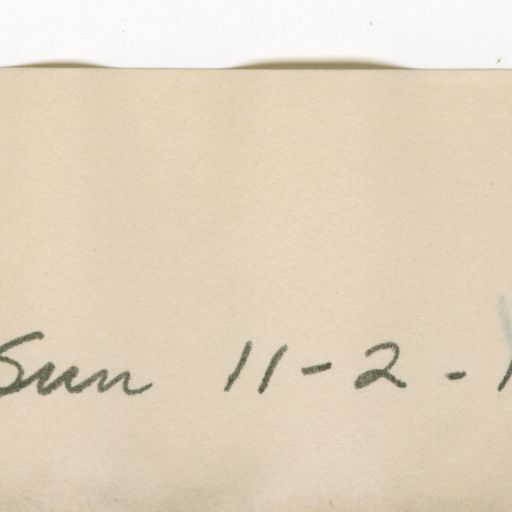 Sun 11-2-1